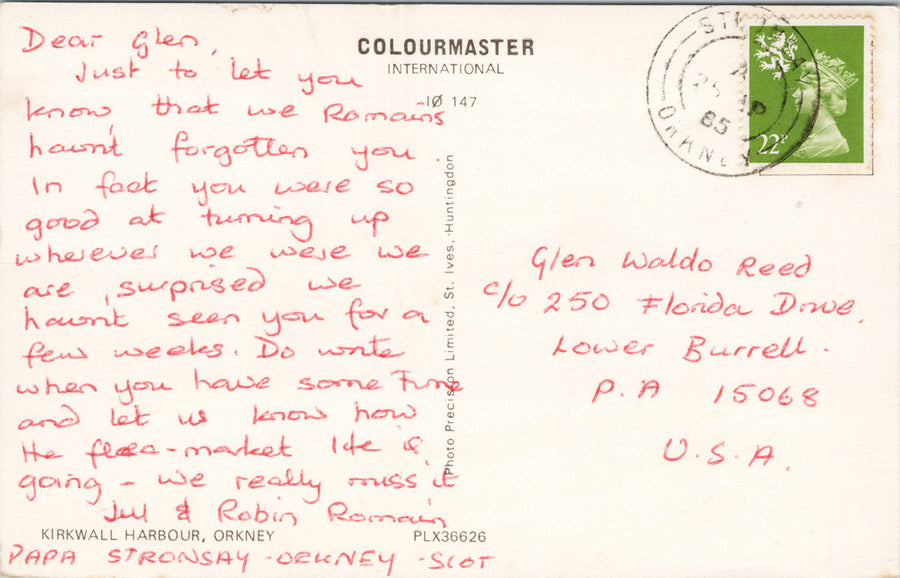 Dear Glen,
Just to let you
know, that we Romains
havnt forgotten you.
In fact you were so
good at turning up
wherever we were we
are, surprised we
havnt seen you for a
few weeks. Do write
when you have some time
and let us know how
the flea-market life is
going - we really miss it
Jill & Robin Romain
KIRKWALL HARBOUR, ORKNEY
PLX36626
PAPA STRONSAY - ORKNEY - SCOT
COLOURMASTER
INTERNATIONAL
IØ 147
Photo Precision Limited, St. Ives, Huntingdon
22P
85
Glen Waldo Reed
c/o 250 Florida Drive,
Lower Burrell.
P.A 15068
U.S.A.